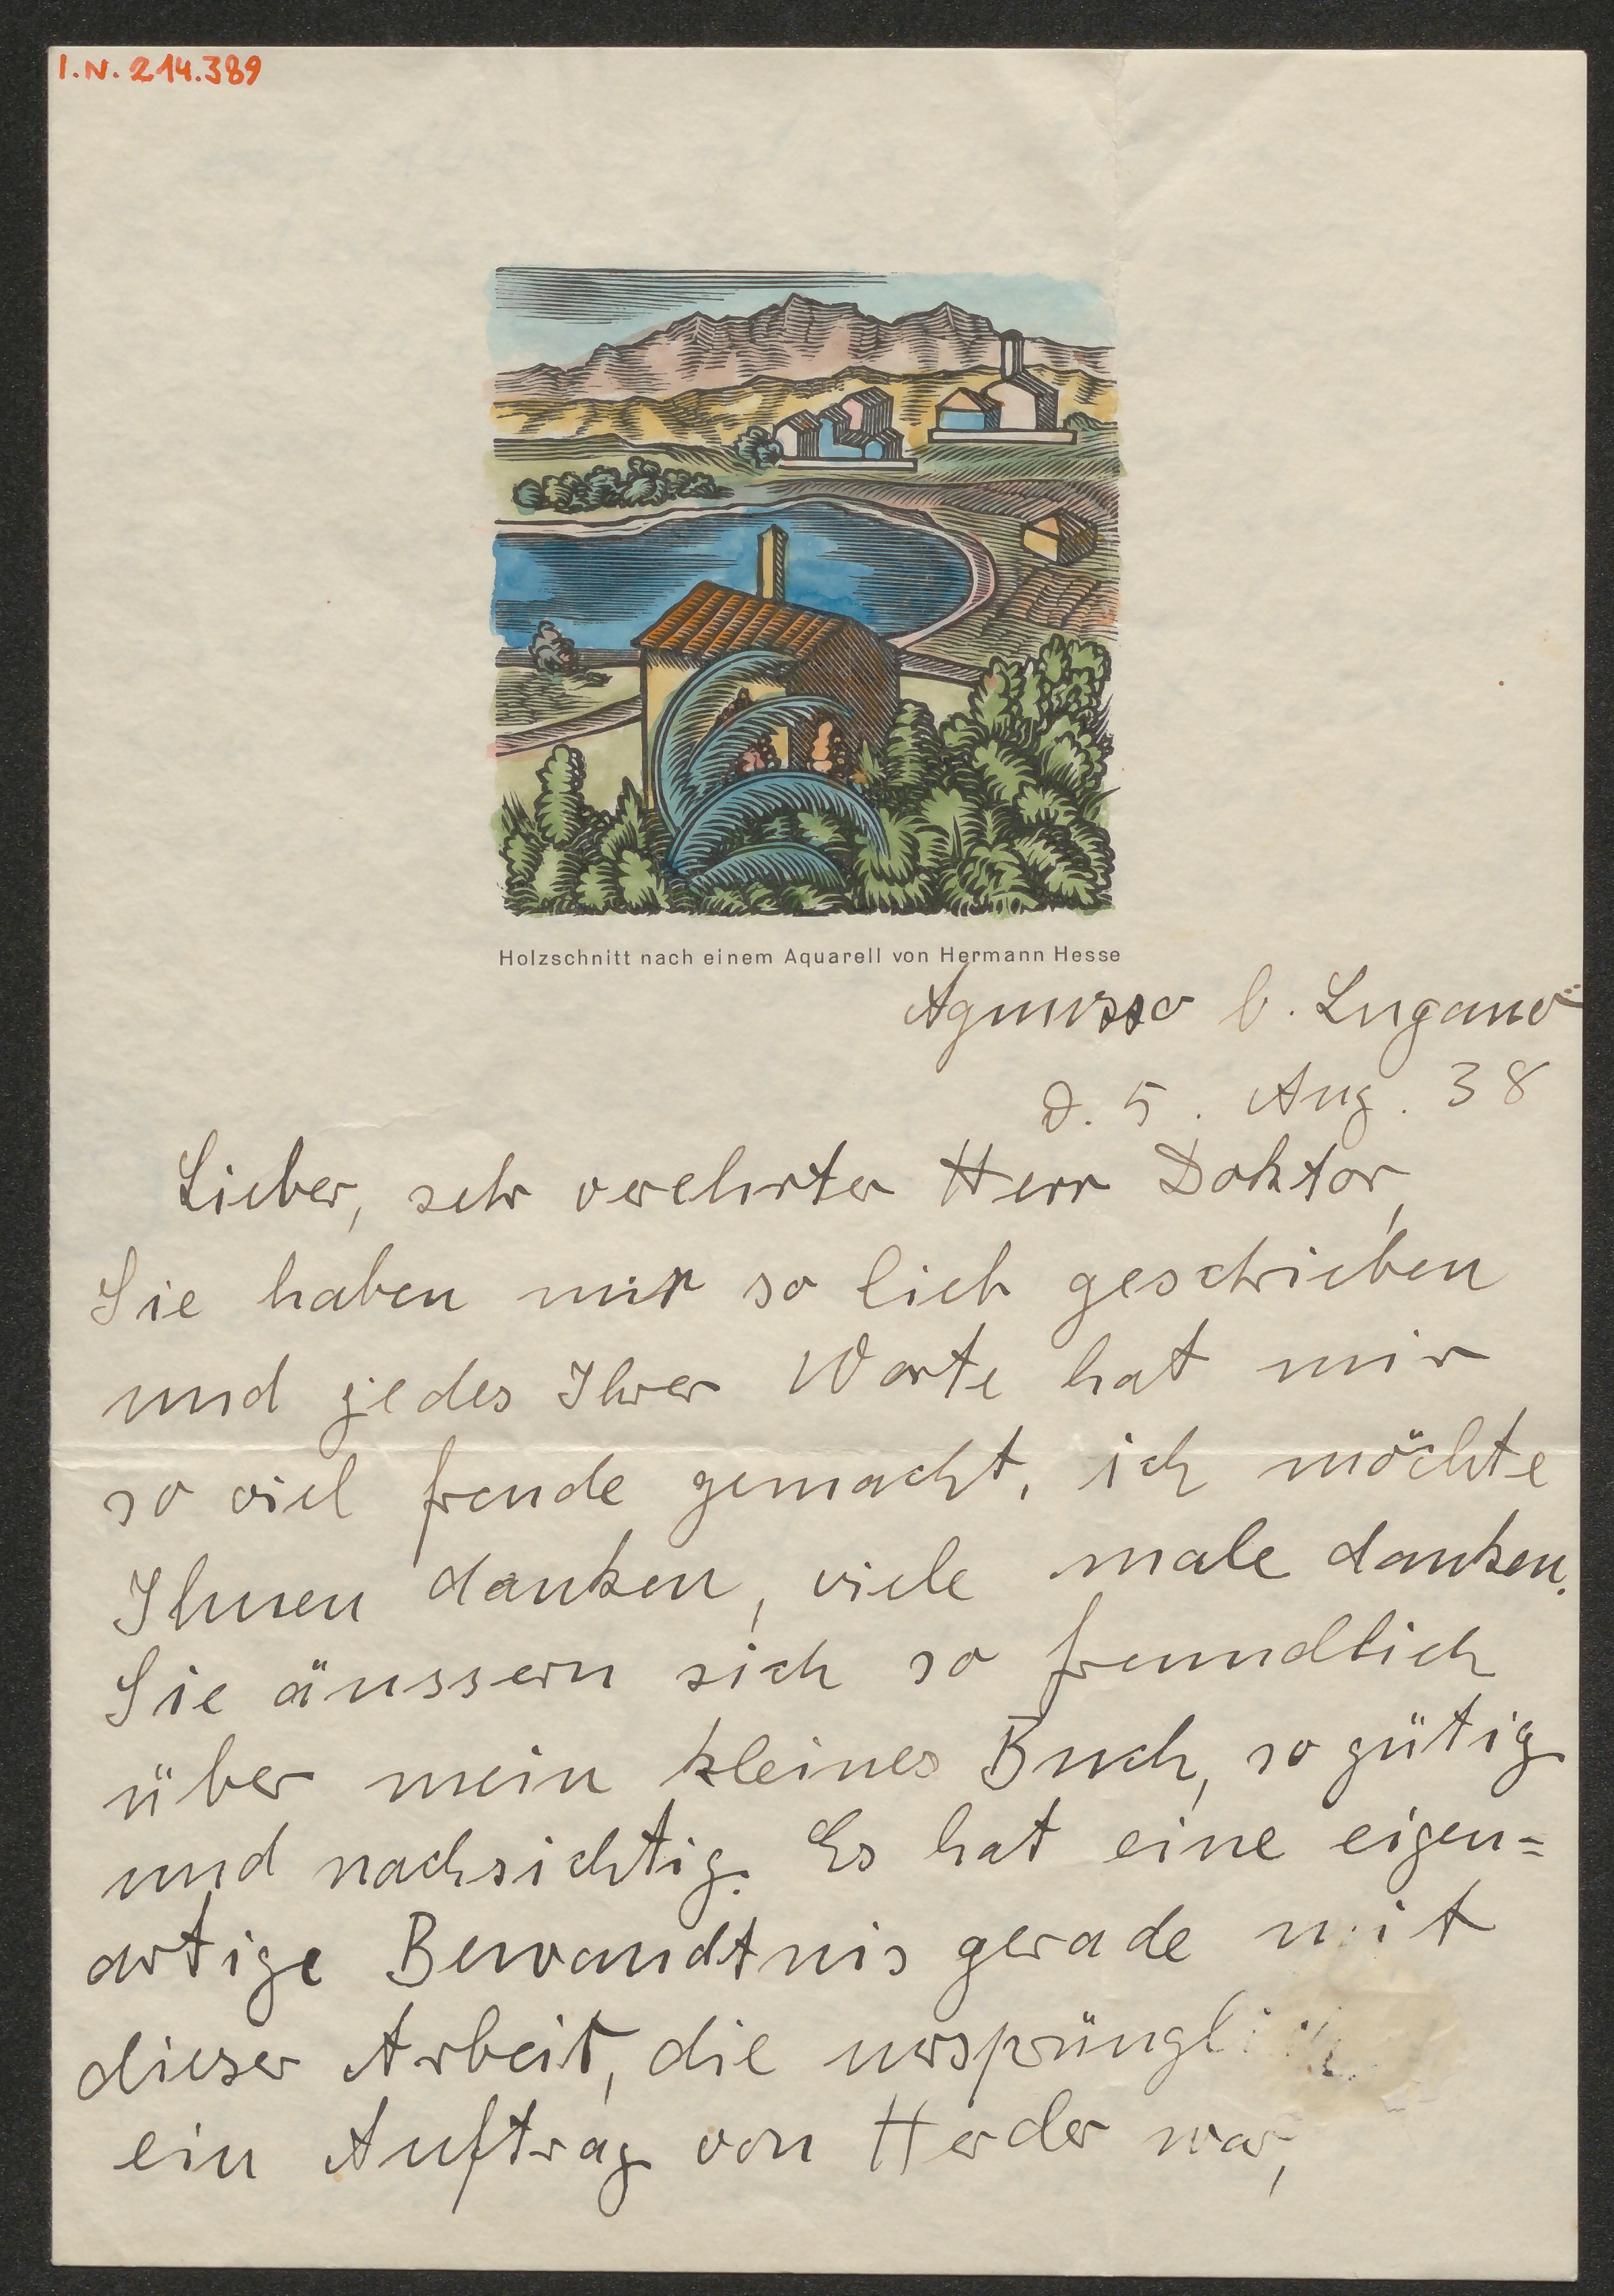 I.N. 214.389
Holzschnitt nach einem Aquarell von Hermann Hesse
Agnuzzo b. Lugano
d. 5. Aug. 38
Lieber, sehr verehrter Herr Doktor,
Sie haben mir so lieb geschrieben
und jedes Ihrer Worte hat mir
so viel freude gemacht, ich möchte
Ihnen danken, viele male danken.
Sie äussern sich so freundlich
über mein kleines Buch, so gütig
und nachsichtig. Es hat eine eigen=
artige Bewandtnis gerade mit
dieser Arbeit, die
ein Auftrag von Herder war,